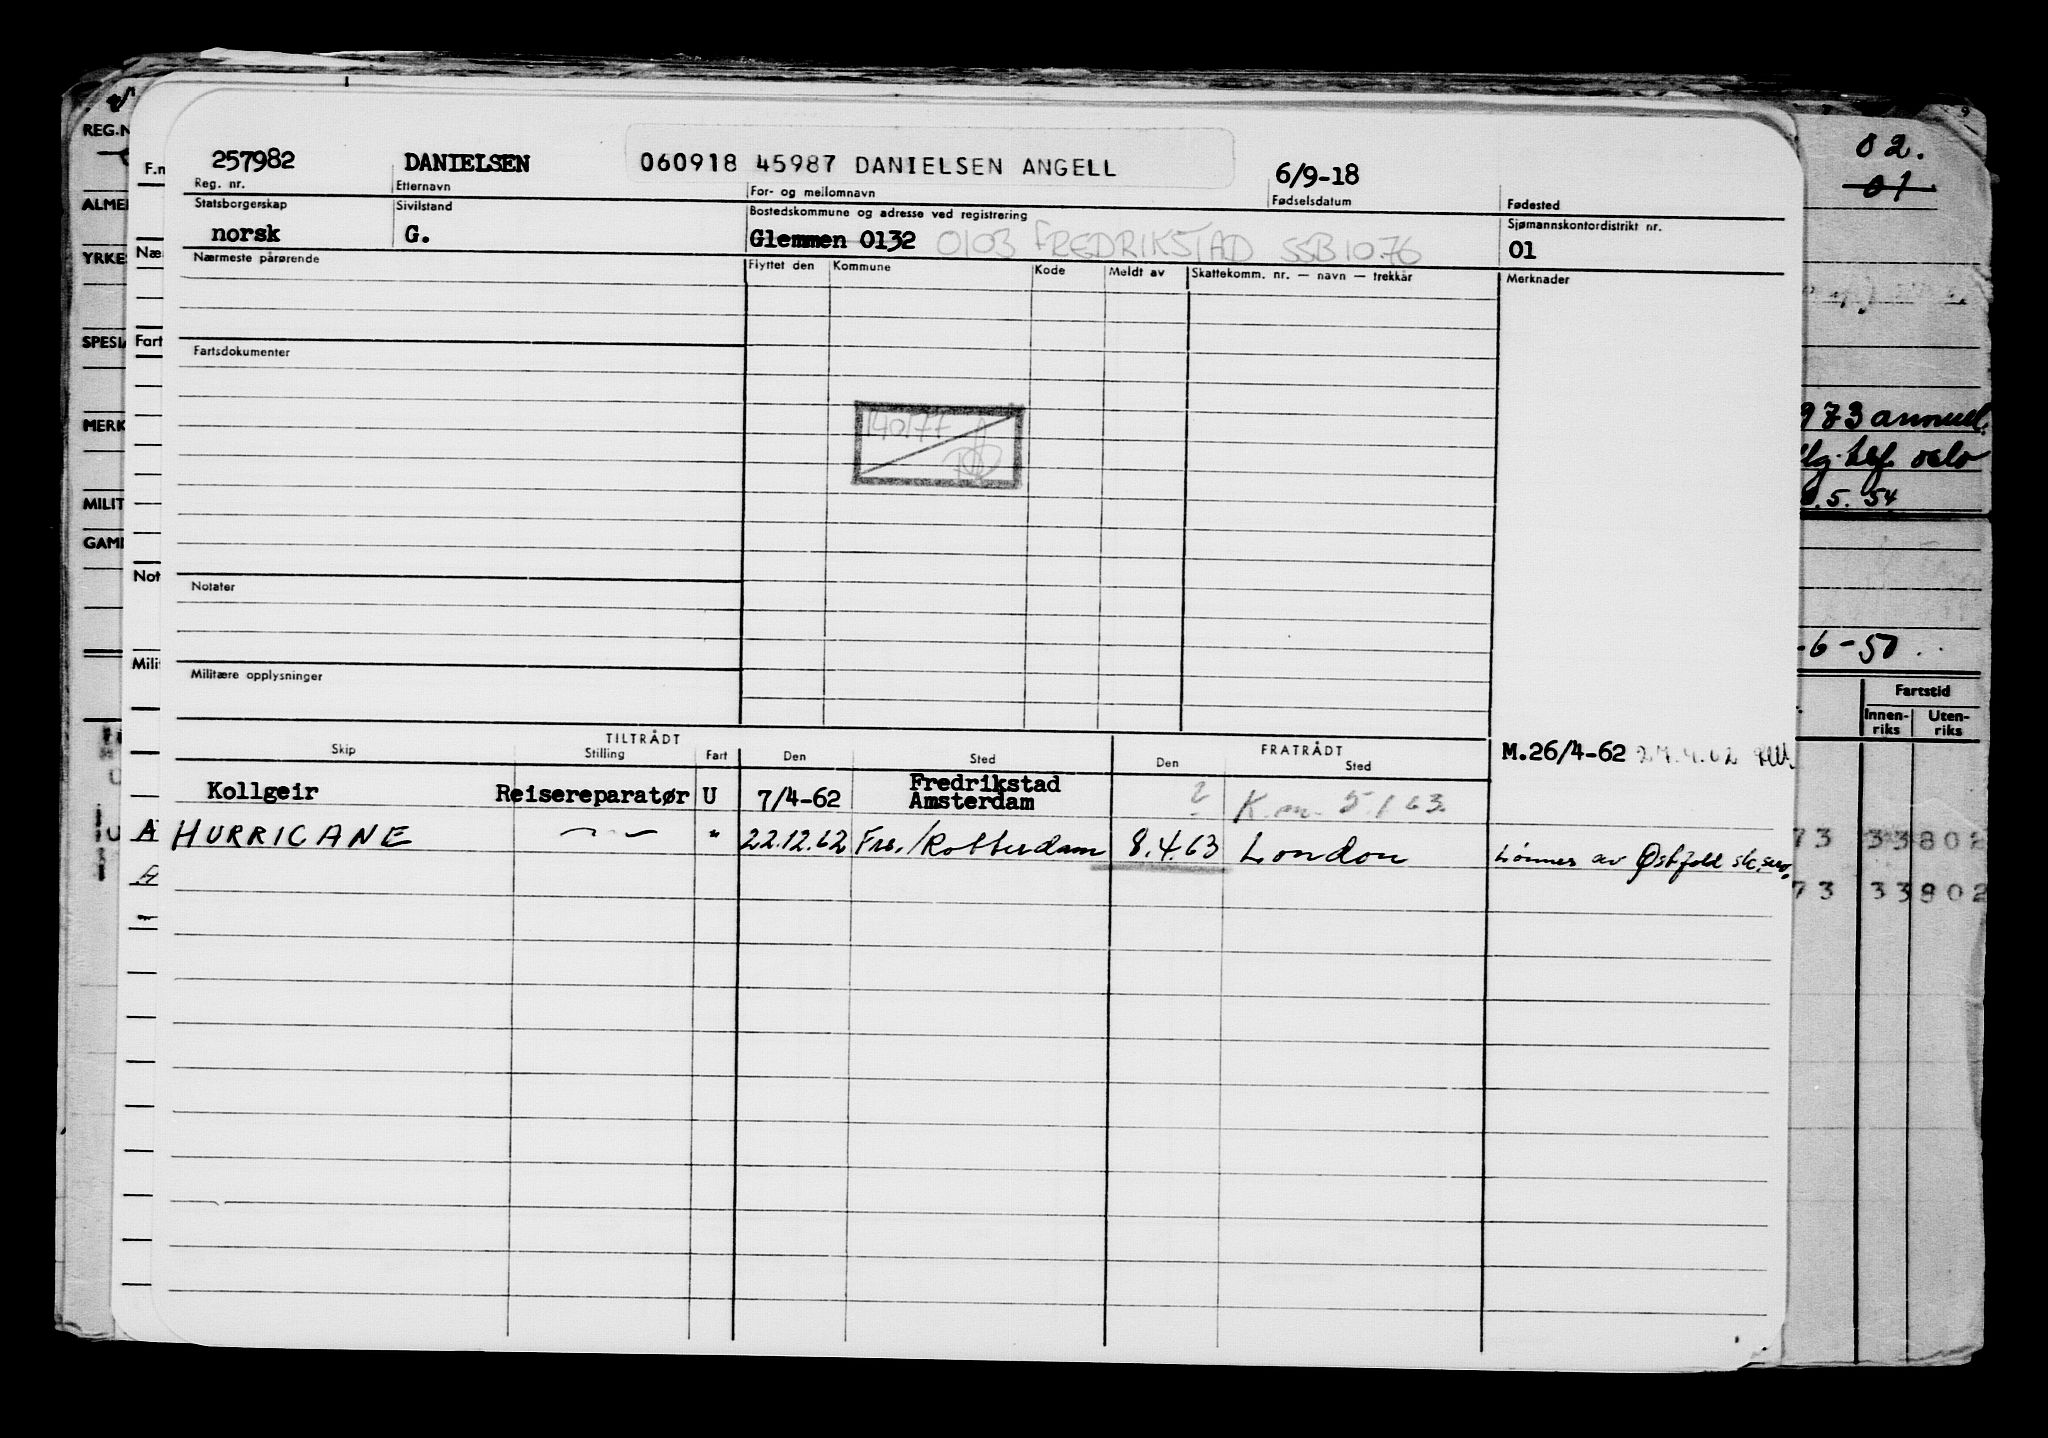 257982 DANIELSEN 060918 45987 DANIELSEN ANGELL 6/9-18
Reg. nr. Etternavn For- og mellomnavn Fødselsdatum Fødested
Statsborgerskap Sivilstand Bostedskommune og adresse ved registrering Sjømannskontordistrikt nr.
norsk G. Glemmen 0132 0103 FREDRIKSTAD SSB 10.76 01
Nærmeste pårørende Flyttet den Kommune Kode Meldt av Skattekomm. nr. — navn — trekkår Merknader
Fartsdokumenter
140177
Notater
Militære opplysninger
TILTRÅDT FRATRÅDT
Skip Stilling Fart Den Sted Den Sted
M.26/4-62
Kollgeir Reisereparatør U 7/4-62 Fredrikstad Amsterdam ? K.m. 5/63
HURRICANE — " — " 22.12.62 Fre./Rotterdam 8.4.63 London Lønnes av Østfold sk.serv.
REG.N
F.n
ALMEI
Næ
YRKE
SPESI
Fart
MERK
MILIT
GAMI
Not
Mili
A
A
02.
01
973 annull.
oslo
.5.54
-6-50
Fartstid
Innen-riks Uten-riks
73 33 802
73 33 802